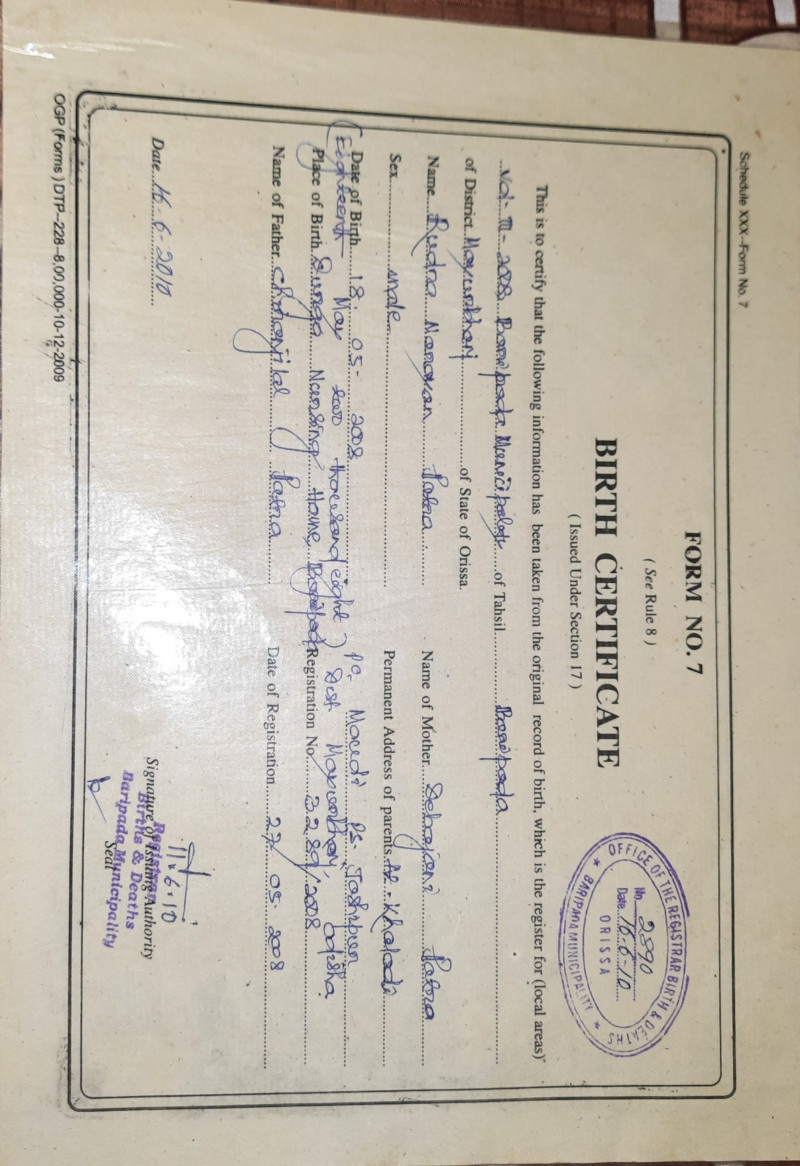 Schedule XXX—Form No. 7
FORM NO. 7
( See Rule 8 )
BIRTH CERTIFICATE
( Issued Under Section 17 )
OFFICE OF THE REGISTRAR BIRTH & DEATHS
No. 2890
Date 16.6.10
ORISSA
★ BARIPADA MUNICIPALITY ★
This is to certify that the following information has been taken from the original record of birth, which is the register for (local areas)
Vol- III - 2008 Baripada Municipality of Tahsil Baripada
of District Mayurbhanj of State of Orissa.
Name Rudra Narayan Patra Name of Mother Debajani Patra
Sex male Permanent Address of parents At - Khaladi
Date of Birth 18. 05- 2008 Po. Ps. Joshipur
(Eighteenth May two thousand eight) Dist Mayurbhanj, Odisha
Place of Birth Durga Nursing Home, Baripada Registration No. 3289/2008
Name of Father Chiranjilal Patra Date of Registration 27 05- 2008
Date 16-6-2010
11.6.10
Signature of Issuing Authority
Seal
Registrar
Births & Deaths
Baripada Municipality
OGP (Forms ) DTP—228—8,00,000-10-12-2009